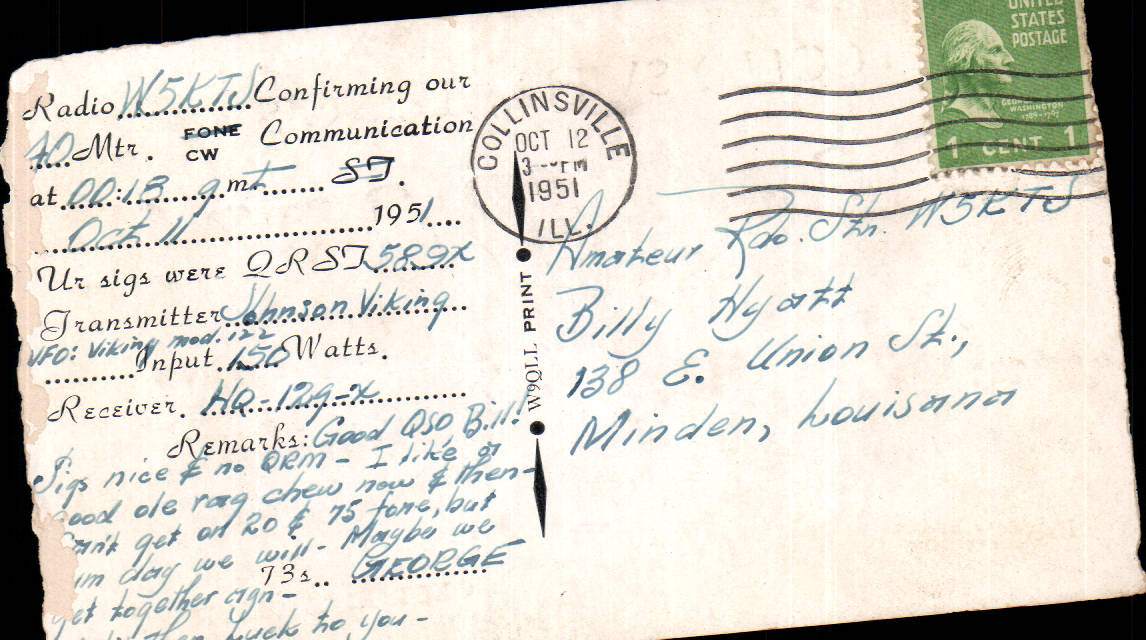 Radio W5KTS Confirming our
40 Mtr. FONE CW Communication
at 00:13 a mt ST.
Oct 11 1951
Ur sigs were QRST 589x
Transmitter Johnson Viking
VFO: Viking mod. 122
Input 150 Watts.
Receiver. HQ-129-X
Remarks: Good QSO Bill!
Sigs nice & no QRM - I like a
good ole rag chew now & then-
can't get on 20 & 75 fone, but
um day we will - Maybe we
get together agn -
73s.. GEORGE
then Luck to you -
W9QLL PRINT
COLLINSVILLE
OCT 12
3 PM
1951
ILL.
UNITED
STATES
POSTAGE
GEORGE
WASHINGTON
1 CENT 1
Amateur Rdo. Stn. W5KTS
Billy Hyatt
138 E. Union St.,
Minden, Louisana